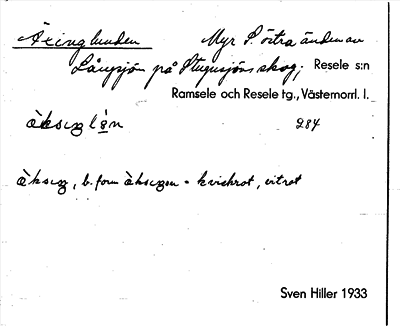 Äxinglunden Myr S. östra ändan av
Långsjön på Stugusjöns skog; Resele s:n
Ramsele och Resele tg., Västernorrl. l.
284
b. form = kvickrot, vitrot
Sven Hiller 1933